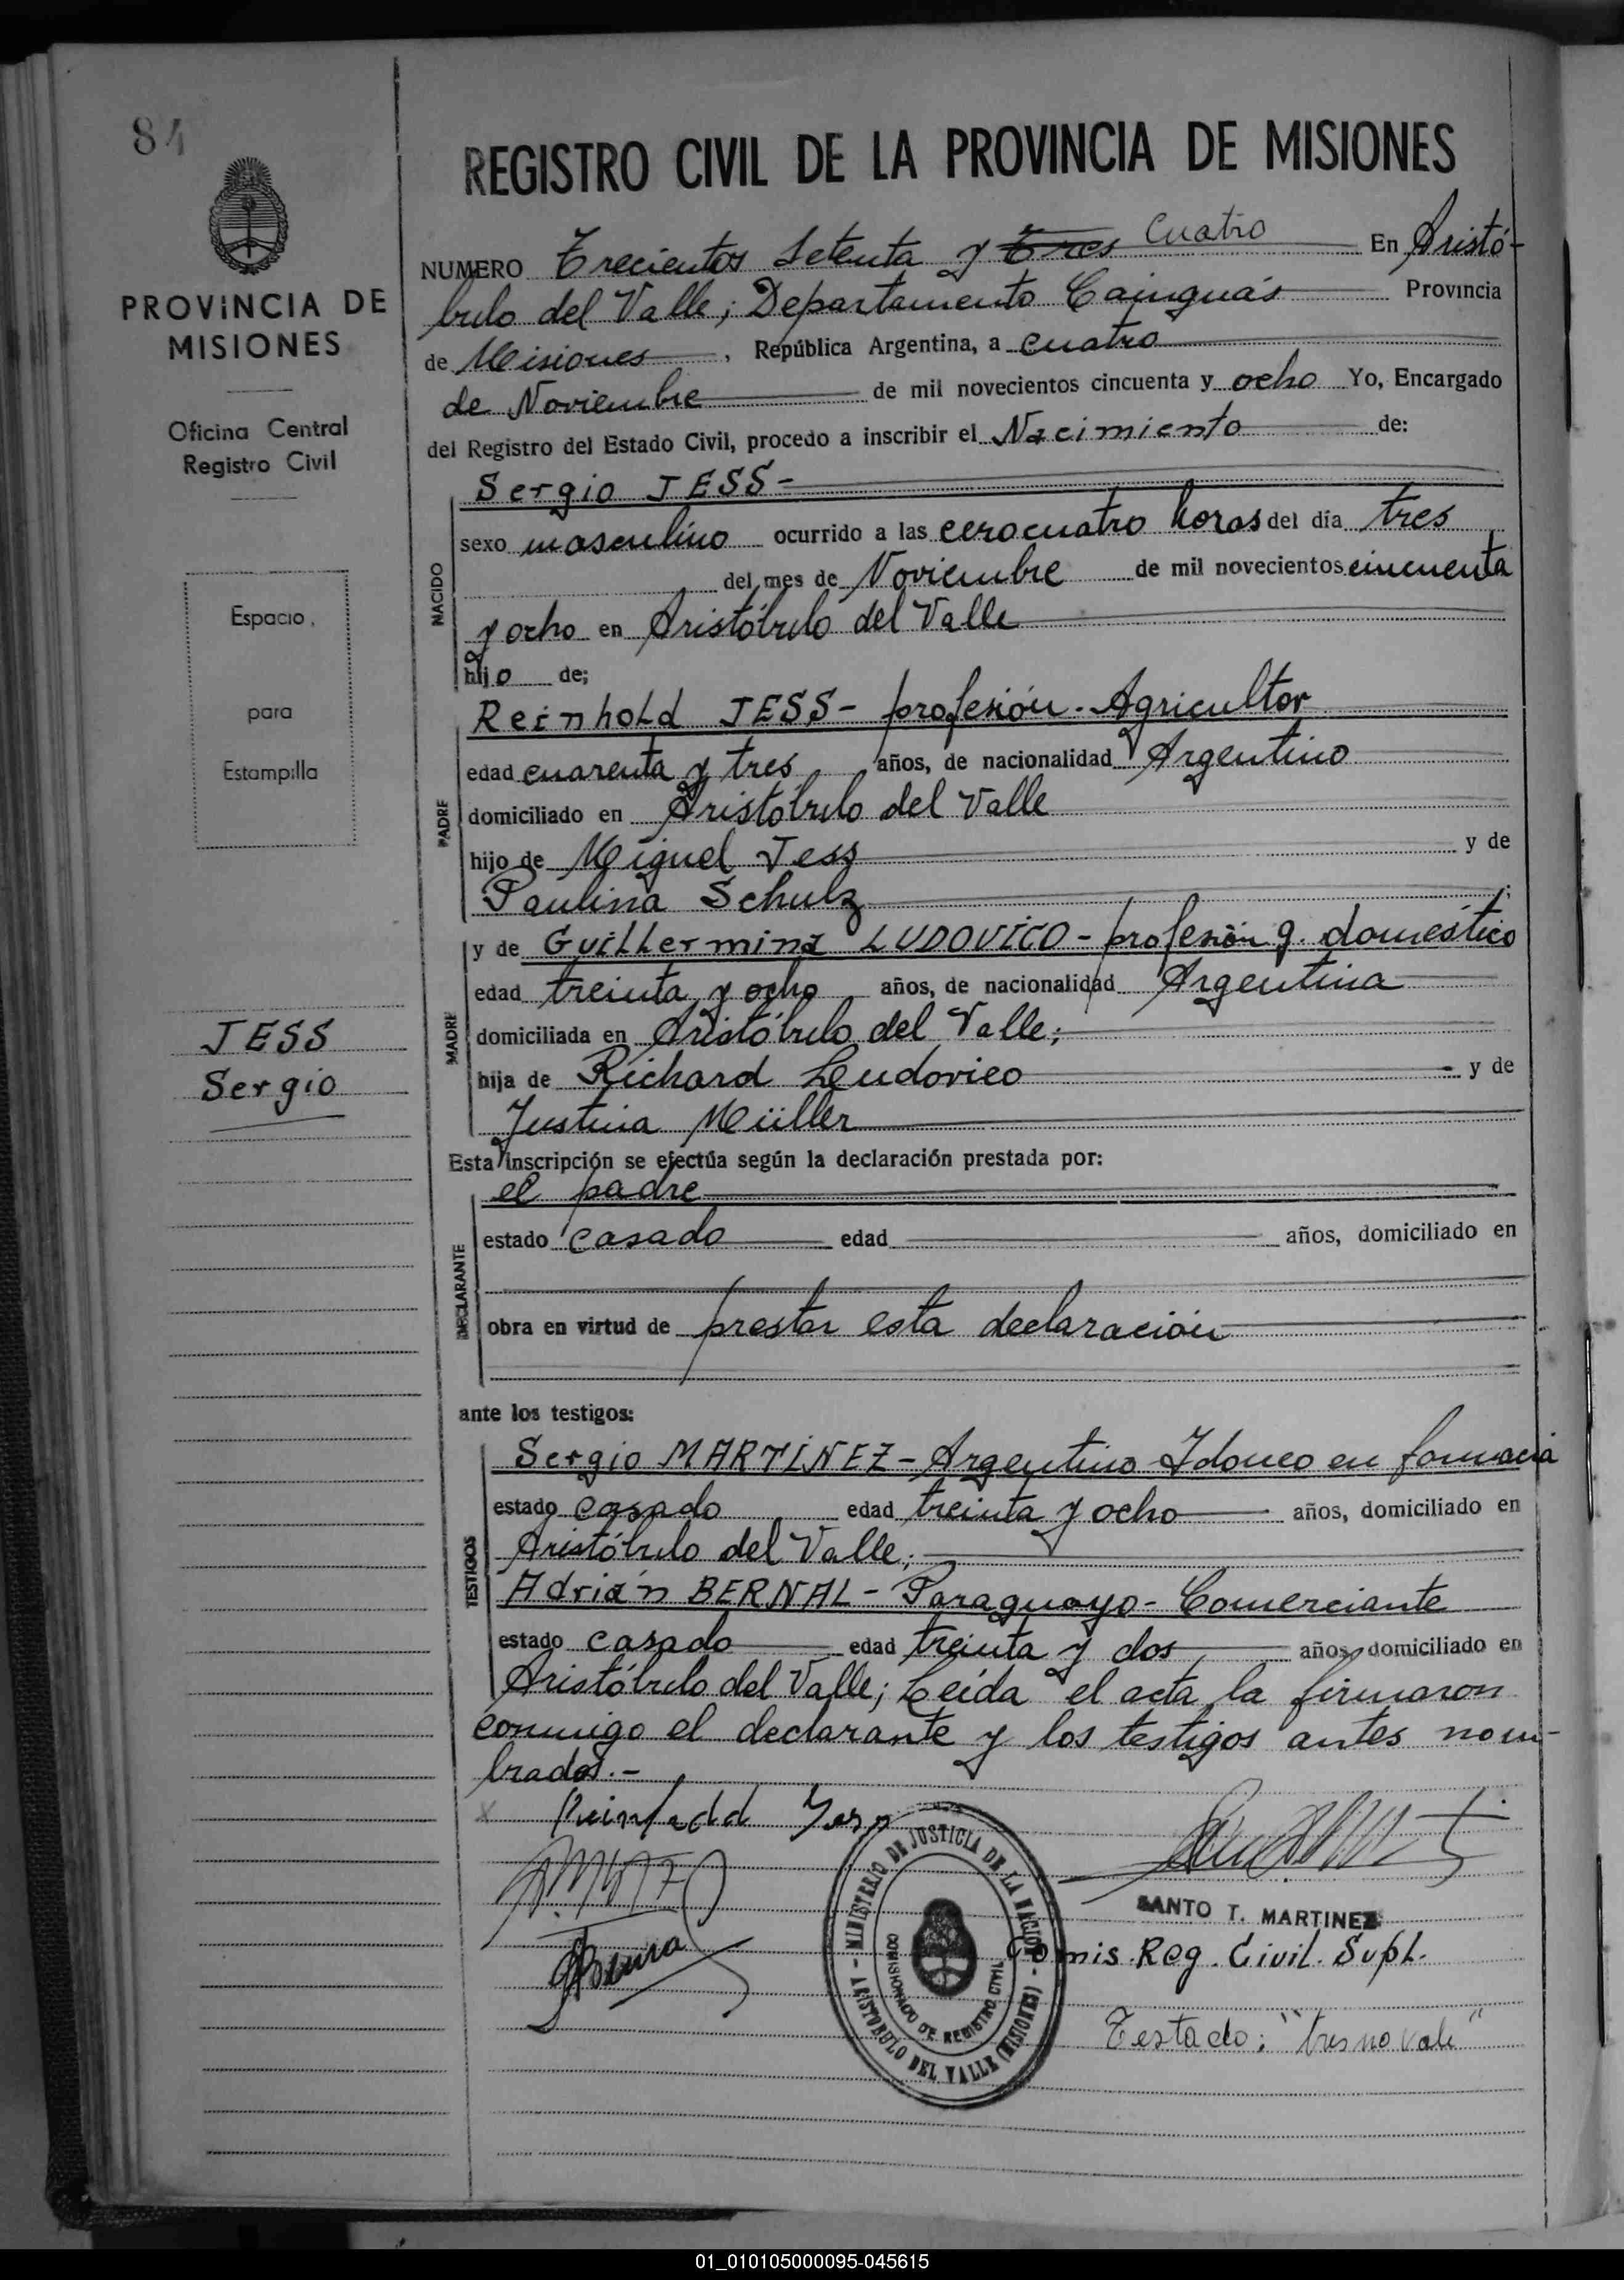 84
PROVINCIA DE
MISIONES
Oficina Central
Registro Civil
Espacio
para
Estampilla
JESS
Sergio
REGISTRO CIVIL DE LA PROVINCIA DE MISIONES
NUMERO Trecientos Setenta y tres Cuatro En Aristó-
bulo del Valle; Departamento Cainguás Provincia
de Misiones, República Argentina, a cuatro
de Noviembre de mil novecientos cincuenta y ocho Yo, Encargado
del Registro del Estado Civil, procedo a inscribir el Nacimiento de:
NACIDO
Sergio JESS-
sexo masculino ocurrido a las cerocuatro horas del día tres
del mes de Noviembre de mil novecientos cincuenta
y ocho en Aristóbulo del Valle
hijo de;
PADRE
Reinhold JESS- profesión- Agricultor
edad cuarenta y tres años, de nacionalidad Argentino
domiciliado en Aristóbulo del Valle
hijo de Miguel Jess y de
Paulina Schulz;
MADRE
y de Guillermina LUDOVICO- profesión q. doméstico
edad treinta y ocho años, de nacionalidad Argentina
domiciliada en Aristóbulo del Valle;
hija de Richard Ludovico y de
Justina Müller
Esta inscripción se efectúa según la declaración prestada por:
DECLARANTE
el padre
estado casado edad años, domiciliado en
obra en virtud de prestar esta declaración
ante los testigos:
TESTIGOS
Sergio MARTÍNEZ- Argentino Idoneo en farmacia
estado casado edad treinta y ocho años, domiciliado en
Aristóbulo del Valle;
Adrián BERNAL- Paraguayo- Comerciante
estado casado edad treinta y dos, años, domiciliado en
Aristóbulo del Valle; Leída el acta la firmaron
conmigo el declarante y los testigos antes nom-
brados.-
x Reinhold Jess
MINISTERIO DE JUSTICIA DE LA NACION - ARISTOBULO DEL VALLE (MISIONES) -
COMISIONADO DE REGISTRO CIVIL
SANTO T. MARTINEZ
Comis. Reg. Civil. Supl.
Testado: "tres no vale"
01_010105000095-045615